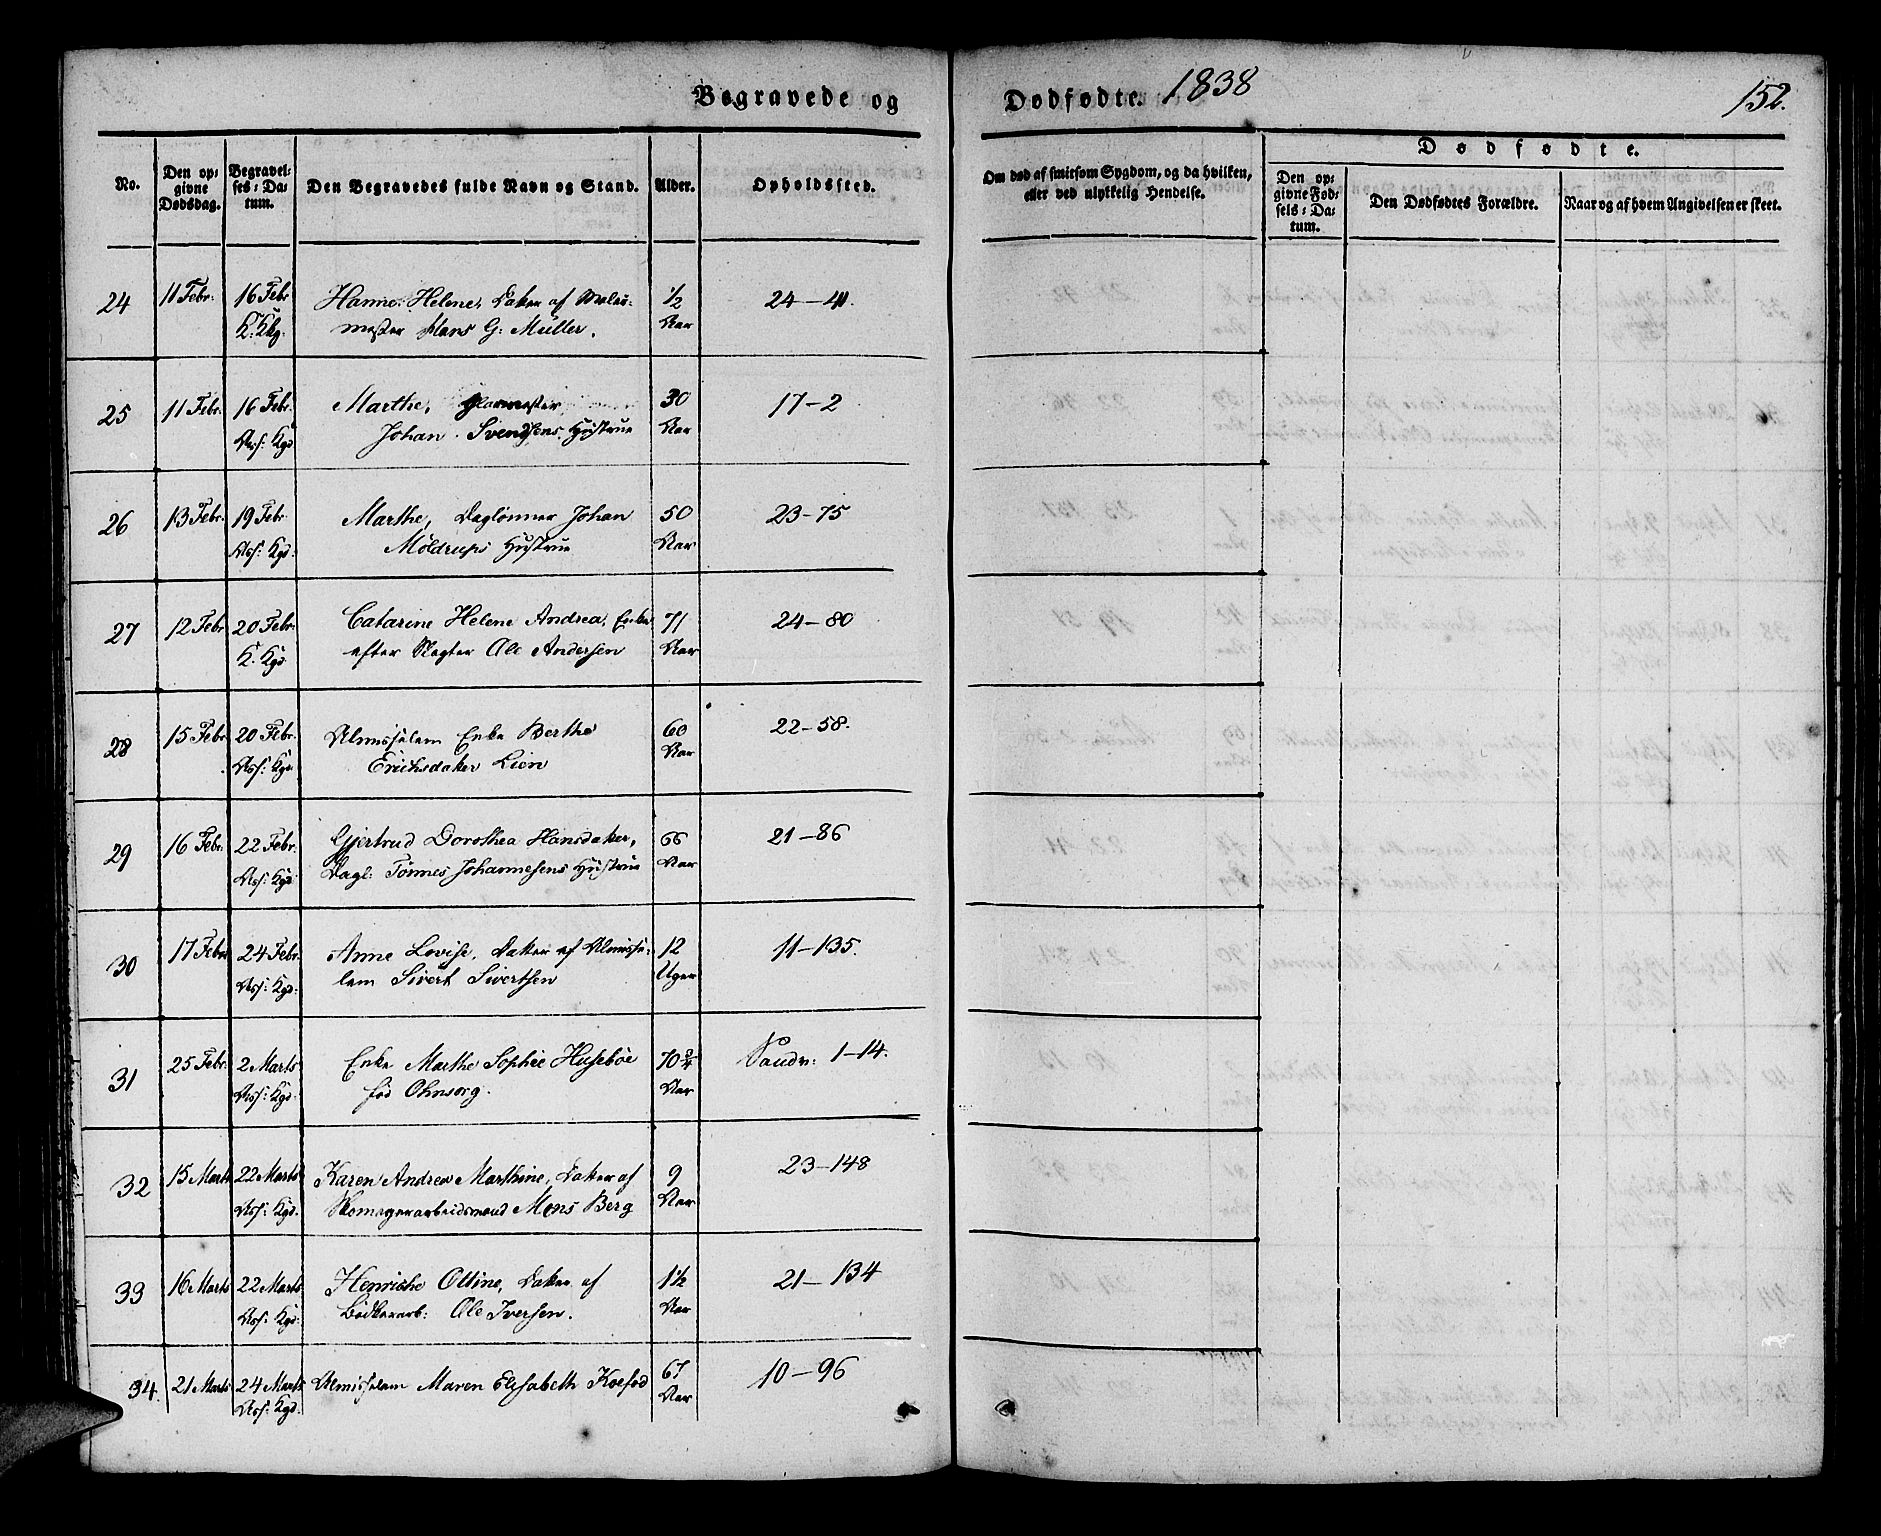 Begravede og Dodfodte. 1838
152.
No.
Den op-
givne
Dødsdag.
Begravel-
ses-Da-
tum.
Den Begravedes fulde Navn og Stand.
Alder.
Opholdssted.
Om død af smitsom Sygdom, og da hvilken,
eller ved ulykkelig Hendelse.
Dødfødte.
Den op-
givne Fød-
sels-Da-
tum.
Den Dødfødtes Forældre.
Naar og af hvem Angivelsen er skeet.
24 11 Febr: 16 Febr Hanne Helene, Datter af Maler- ½ 24-41.
K. Kkg. mester Hans G: Müller. Aar
25 11 Febr. 16 Febr. Marthe, Glarmester 30 17-2
Ass: Kgd Johan Svendsens Hustrue Aar
26 13 Febr. 19 Febr. Marthe, Daglønner Johan 50 23-75
Ass: Kgd: Möldrups Hustrue Aar
27 12 Febr 20 Febr. Catarine Helene Andrea, Enke 71 24-80
K. Kgd efter Slagter Ole Andersen Aar
28 15 Febr. 20 Febr. Almisselem Enke Berthe 60 22-58.
Ass: Kgd Erichsdatter Lien Aar
29 16 Febr. 22 Febr. Gjertrud Dorothea Hansdatter, 66 21-86
Ass: Kgd Dagl: Tönnes Johannesens Hustrue Aar
30 17 Febr 24 Febr. Anne Lovise, Datter af Almisse- 12 11-135.
Ass: Kgd: lem Sivert Sivertsen Uger
31 25 Febr. 2 Marts Enke Marthe Sophie Husebøe 70 ¾ Sandv: 1-14.
Ass: Kgd. fød Ohnsorg. Aar
32 15 Marts 22 Marts Karen Andrea Marthine, Datter af 9 23-148
Ass: Kgd. Skomagerarbeidsmand Mons Berg Aar
33 16 Marts 22 Marts Henriche Olline, Datter af 1½ 21-134
Ass: Kgd: Bödkerarb: Ole Iversen. Aar
34. 21 Marts 24 Marts Almisselem Maren Elisabeth Koefod 67 10-96
Ass: Kgd. Aar